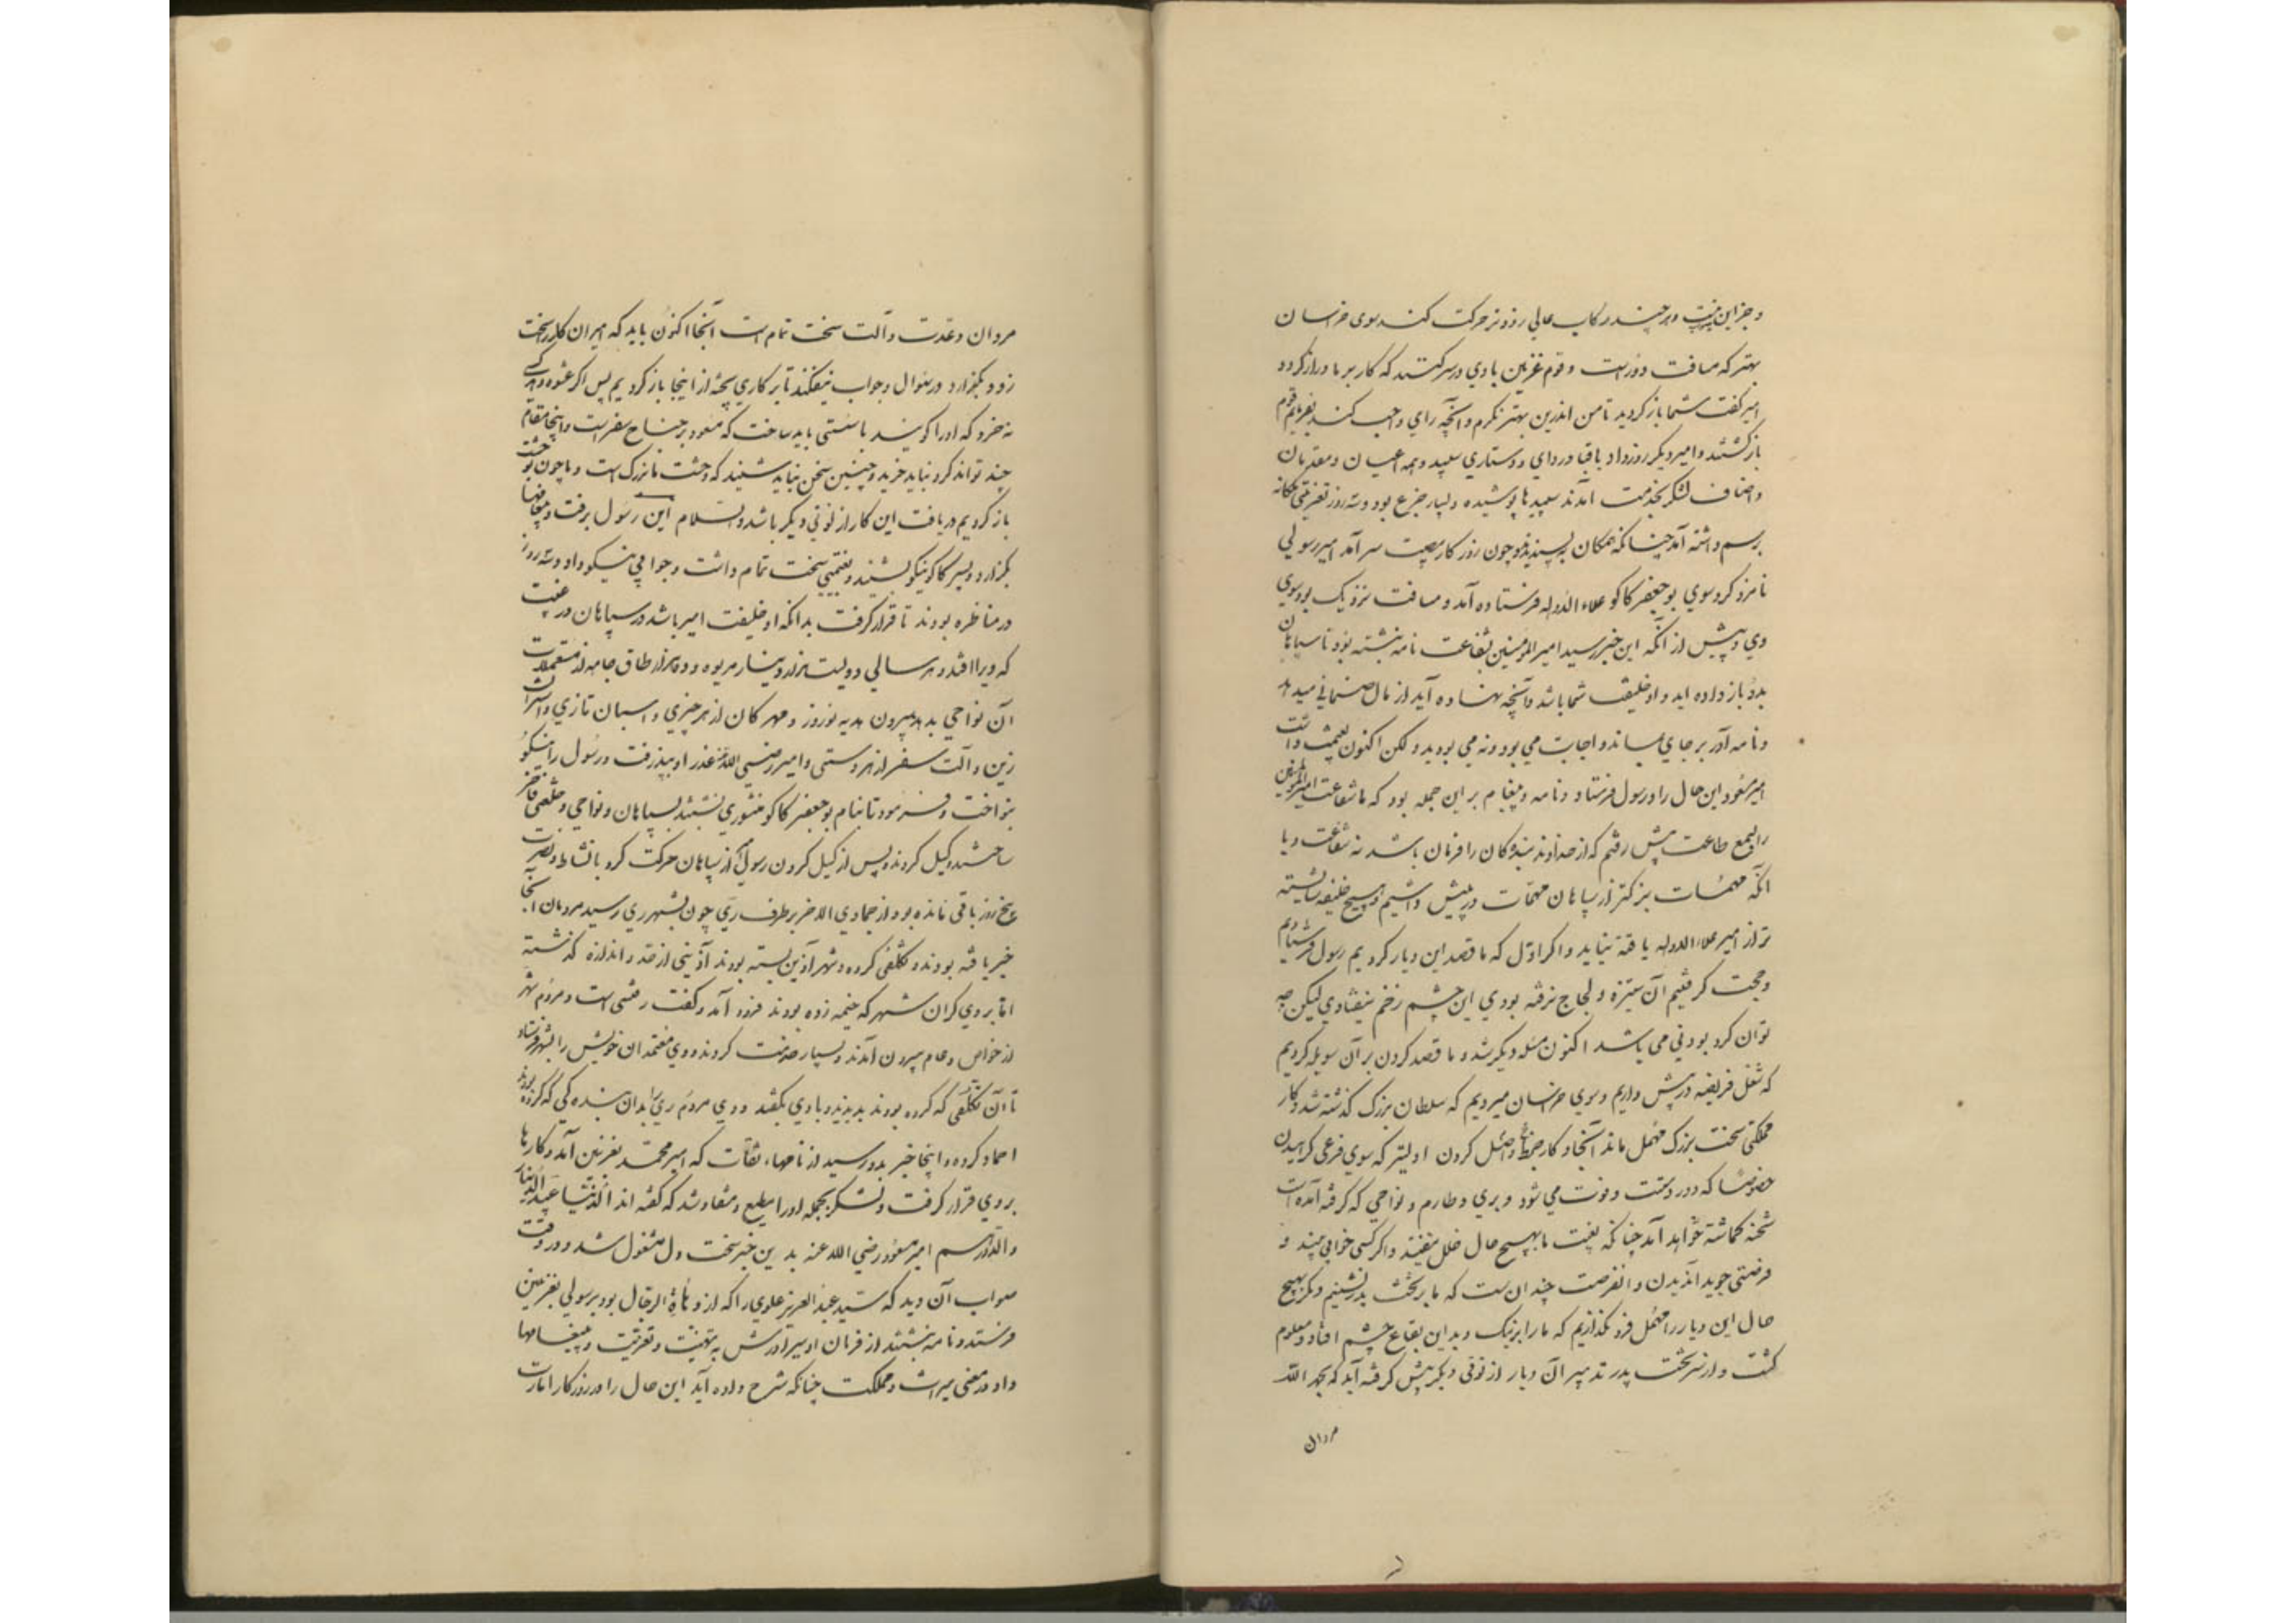 و جز این نیست و هر چند رکاب عالی زودتر حرکت کند سوی خراسان
بهتر که مسافت دورست و قوم غزنین بادی در سر کنند که کار بر ما دراز گردد
امیر گفت شما باز گردید تا من اندرین بهتر نگرم و آنچه رای واجب کند بفرمایم قوم
بازگشتند و امیر دیگر روز داد با قبا و ردای و دستاری سپید و همه اعیان و مقدمان
و اصناف لشکر بخدمت آمدند سپیدها پوشیده و بسیار جزع بود و سه روز تعزیتی ملکانه
برسم داشته آمد چنانکه همگان به پسندیدند و چون روزگار مصیبت سر آمد امیر رسولی
نامزد کرد سوی بوجعفر کاکو علاء الدوله فرستاده آمد و مسافت نزدیک بود سوی
وی و پیش از آنکه این خبر رسید امیر المؤمنین بشفاعت نامه نبشته بود تا سپاهان
بدو باز داده اید و او خلیفت شما باشد و آنچه نهاده آید از مال ضمانی میدهد
و نامه آور بر جای بماند و اجابت می بود و نه می بودید و لکن اکنون بغنیمت داشت
امیر مسعود این حال را و رسول فرستاد و نامه و پیغام بر این جمله بود که ما شفاعت امیر المؤمنین
را بسمع طاعت پیش رفتیم که از خداوند بندگان را فرمان باشد نه شفاعت و با
آنکه مهمات بزرگتر از سپاهان مهمات در پیش داشتیم و هیچ خلیفه شایسته
تر از امیر علاء الدوله یافته نیاید و اگر اول که ما قصد این دیار کردیم رسول فرستادیم
و حجت گرفتیم آن ستیزه و لجاج نرفته بودی این چشم زخم نیفتادی لیکن چه
توان کرد بودنی می باشد اکنون مسئله دیگر شد و ما قصد کردن بر آن سو یله کردیم
که شغل فریضه در پیش داریم و سوی خراسان میرویم که سلطان بزرگ گذشته شد و کار
مملکتی سخت بزرگ مهمل ماند آنجا و کار ضبط اصل کردن اولیتر که سوی فرعی گراییدن
خصوصا که دور دست و فوت می شود و بری و طارم و نواحی که گرفته آمده است
شحنه گماشته خواهد آمد چنانکه بغیبت ما بهیچ حال خلل نیفتد و اگر کسی خوابی بیند و
فرصتی جوید آن دیدن و آن فرصت چندان ست که ما بر تخت پدر نشینیم و دیگر بهیچ
حال این دیار را مهمل فرو نگذاریم که ما را بر نیک و بد این بقاع چشم افتاد و معلوم
گشت و از سر تخت پدر تدبیر آن دیار از نوعی دیگر پیش گرفته آید که بحمد الله
مردان
مردان و عدت و آلت سخت تمام است آنجا اکنون باید که امیران کار سخت
زود بگزارد و در سئوال و جواب نیفکند تا بر کاری پخته از اینجا باز گردیم پس اگر عشوه دهد کسی
نخرد که او را گویند با سستی باید ساخت که مسعود بر جناح سفرست و اینجا مقام
چند تواند کرد نباید خرید و چنین سخن نباید شنید که وحشت ما بزرگ است و ما چون بوحشت
باز گردیم دریافت این کار از لونی دیگر باشد والسلام این رسول برفت و پیغامها
بگزارد و پسر کاکو نیکو بشنید و بغنیمتی سخت تمام داشت و جوابی نیکو داد و سه روز
در مناظره بودند تا قرار گرفت بدانکه او خلیفت امیر باشد در سپاهان در غیبت
که ویرا افتد و هر سالی دویست هزار دینار هریوه و ده هزار طاق جامه از مستعملات
آن نواحی بدهد بیرون هدیه نوروز و مهرگان از هر چیزی و اسبان تازی و استران
زین و آلت سفر از هر دستی و امیر رضی الله عنه عذر او بپذرفت و رسول را نیکو
بنواخت و فرمود تا بنام بوجعفر کاکو منشوری نبشتند بسپاهان و نواحی و خلعتی فاخر
ساختند و گسیل کردند و پس از گسیل کردن رسول امیر از سپاهان حرکت کرد با نشاط و نصرت
پنج روز باقی مانده بود از جمادی الاخر بر طرف ری چون بشهر ری رسید مردمان آنجا
خبر یافته بودند و تکلفی کرده و شهر آذین بسته بودند آذینی از حد و اندازه گذشته
اما بروی کران شهر که خیمه زده بودند فرود آمد و گفت رفتنی است و مردم شهر
از خواص و عام بیرون آمدند و بسیار خدمت کردند و وی معتمدان خویش را بشهر فرستاد
تا آن تکلفی که کرده بودند بدیدند و با وی بگفتند و وی مردم ری را بدان بندگی که کرده بودند
احماد کرده و اینجا خبر بدو رسید از نامهاء ثقات که امیر محمد بغزنین آمد و کارها
بر وی قرار گرفت و لشکر بجمله او را مطیع و منقاد شد که گفته اند الدنیا عبید الدینار
والدرهم امیر مسعود رضی الله عنه بدین خبر سخت دل مشغول شد و در وقت
صواب آن دید که سید عبد العزیز علوی را که از دهاة الرجال بود برسولی بغزنین
فرستد و نامه نبشتند از فرمان او ببرادرش به تهنیت و تعزیت و پیغامها
داد در معنی میراث و مملکت چنانکه شرح داده آید این حال را در روزگار امارت